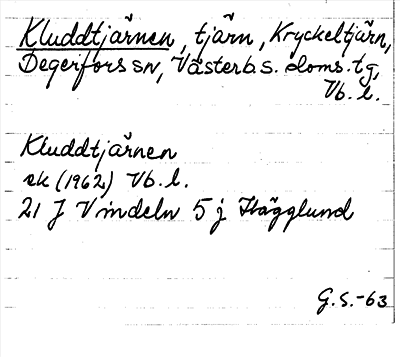 Kluddtjärnen, tjärn, Kryckeltjärn,
Degerfors sn, Västerb.s. doms. tg,
Vb. l.
Kluddtjärnen
ek (1962) Vb. l.
21 J Vindeln 5 j Hägglund
G.S.-63